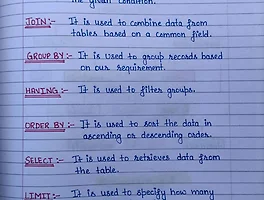 the given condition.
JOIN :- It is used to combine data from
tables based on a common field.
GROUP BY :- It is used to group records based
on our requirement.
HAVING :- It is used to filter groups.
ORDER BY :- It is used to sort the data in
ascending or descending order.
SELECT :- It is used to retrieves data from
the table.
LIMIT :- It is used to specify how many